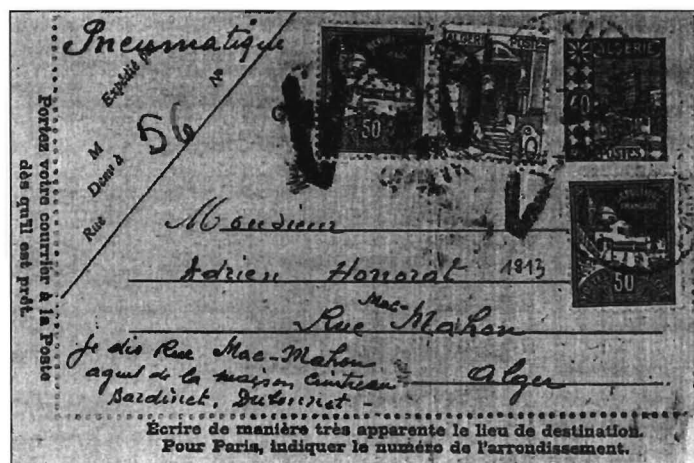 Pneumatique
Expédié par
N°
M
56
Demt à
Rue
Portez votre courrier à la Poste
dès qu'il est prêt.
ALGERIE POSTES
ALGERIE
50
40
POSTES
50
Monsieur
Adrien Honorat 1813
Rue Mac-Mahon
Je dis Rue Mac-Mahon
agent de la maison Cointreau
Bardinet, Dubonnet -
Alger
Écrire de manière très apparente le lieu de destination.
Pour Paris, indiquer le numéro de l'arrondissement.